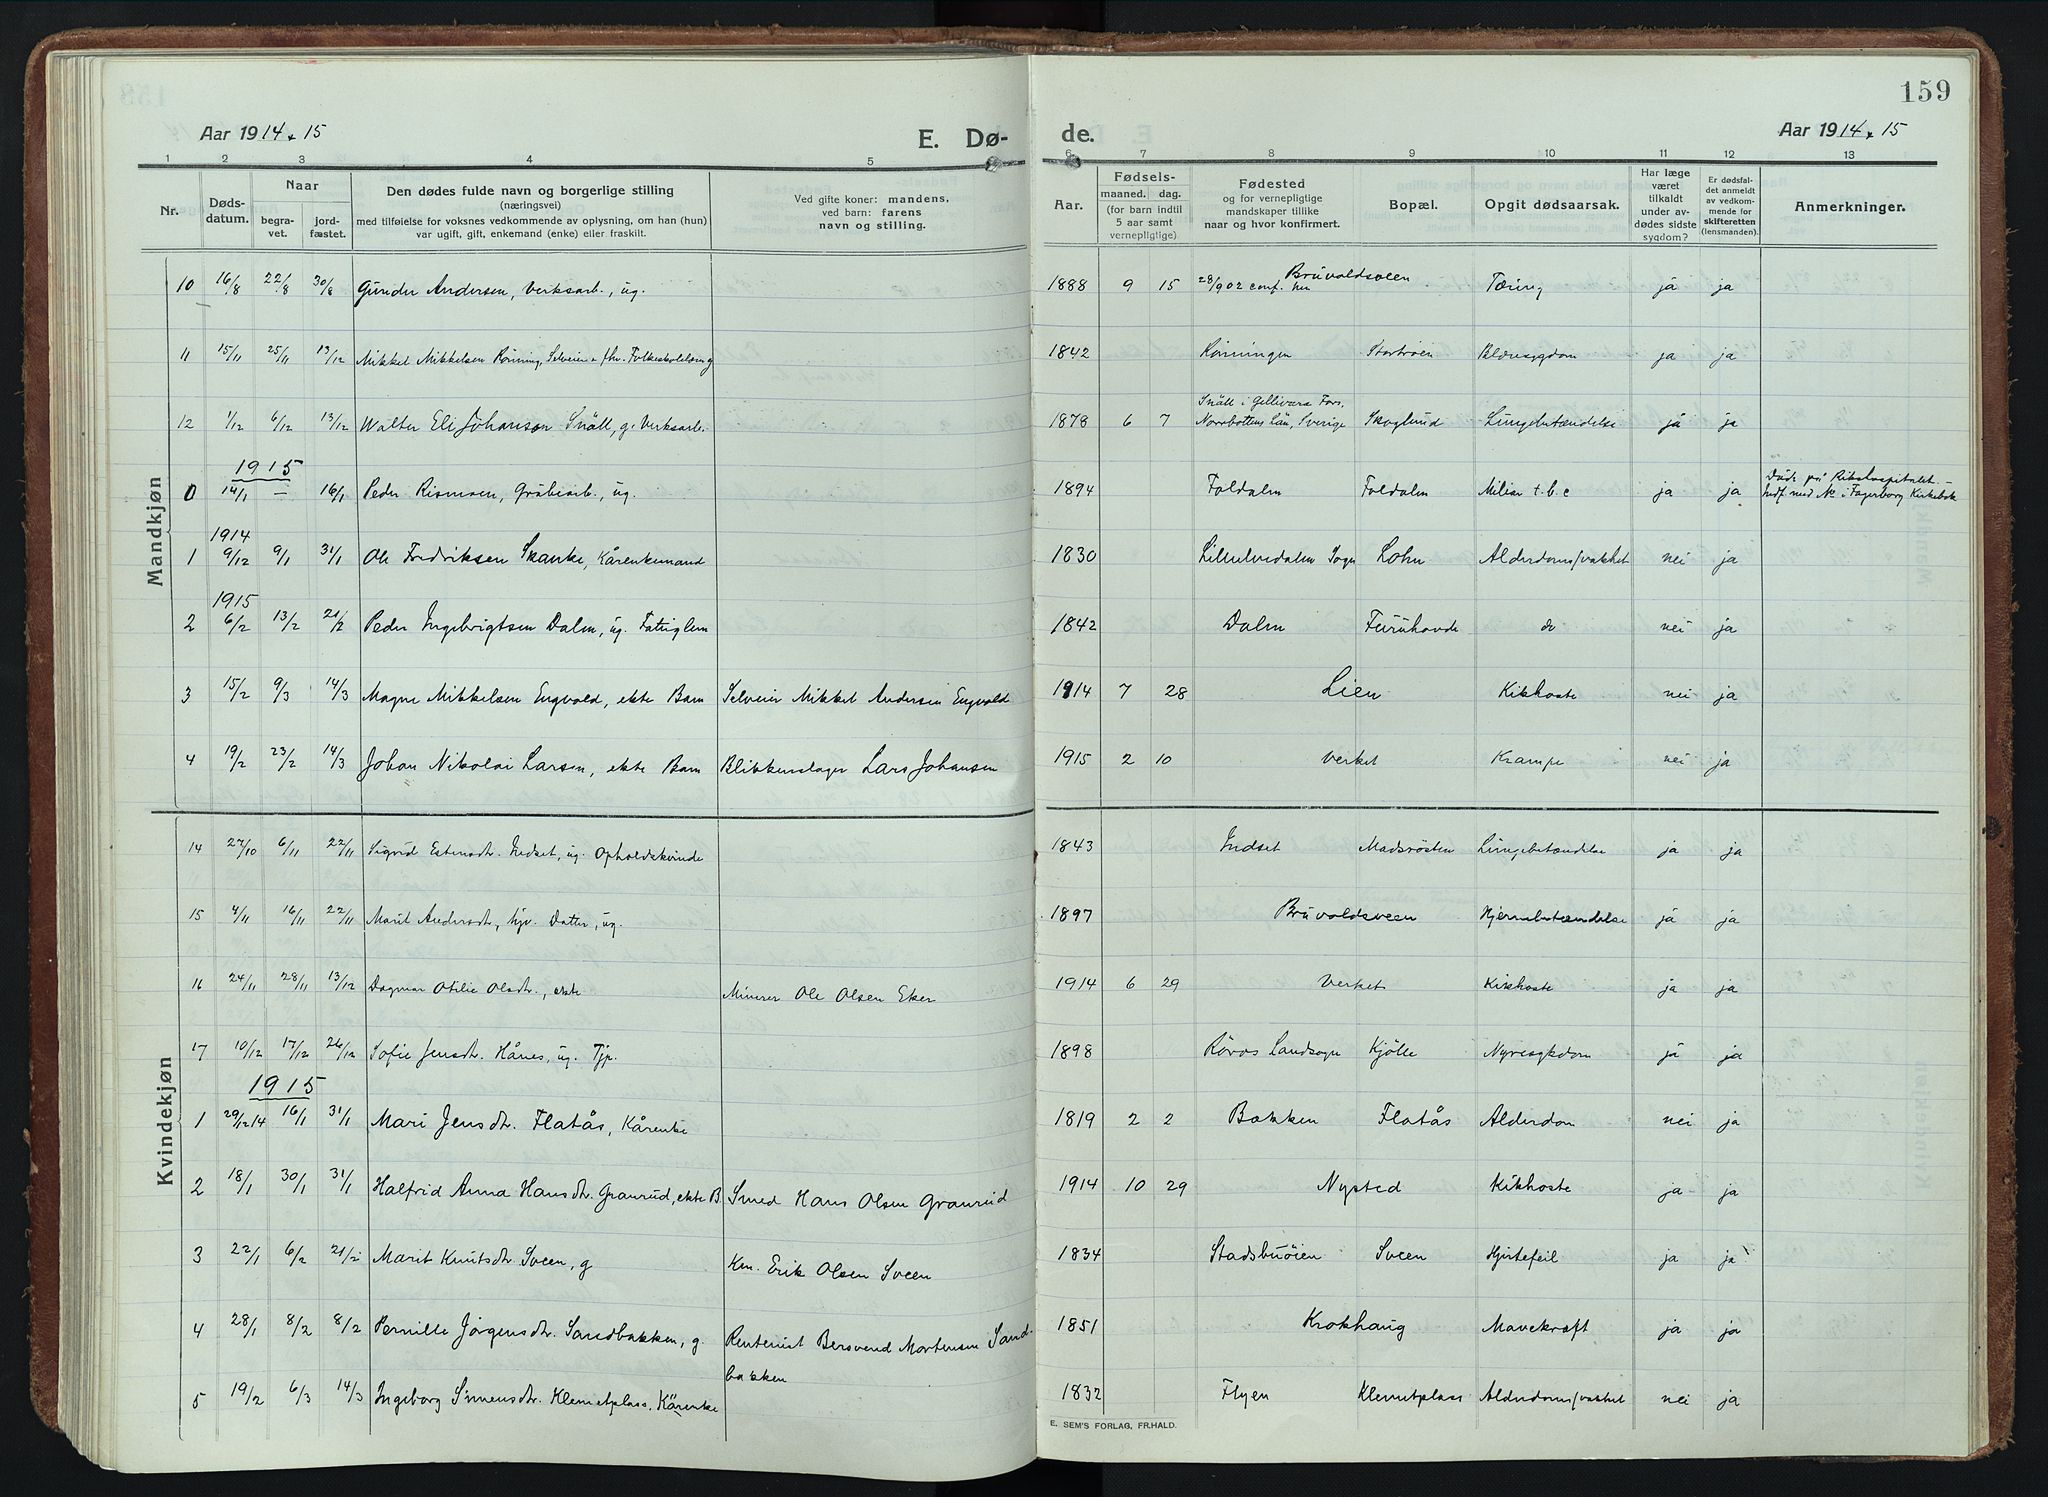 159
Aar 1914 & 15
E. Dø-
de.
Aar 1914 & 15
1 2 3 4 5 6 7 8 9 10 11 12 13
Nr.
Døds-
datum.
Naar
begra-
vet.
jord-
fæstet.
Den dødes fulde navn og borgerlige stilling
(næringsvei)
med tilføielse for voksnes vedkommende av oplysning, om han (hun)
var ugift, gift, enkemand (enke) eller fraskilt.
Ved gifte koner: mandens,
ved barn: farens
navn og stilling.
Aar.
Fødsels-
maaned. dag.
(for barn indtil
5 aar samt
vernepligtige)
Fødested
og for vernepligtige
mandskaper tillike
naar og hvor konfirmert.
Bopæl.
Opgit dødsaarsak.
Har læge
været
tilkaldt
under av-
dødes sidste
sygdom?
Er dødsfal-
det anmeldt
av vedkom-
mende for
skifteretten
(lensmanden).
Anmerkninger.
Mandkjøn
10 16/8 22/8 30/8 Gunder Andersen, Verksarb., ug. 1888 9 15 28/9 02 conf. her Bruvoldsveen Tæring ja ja
11 15/11 25/11 13/12 Mikkel Mikkelsen Rönning, Selveier & fhv. Folkeskolelær. g 1842 Rönningen Storröen Blæresygdom ja ja
12 1/12 6/12 13/12 Walter Eli Johanson Snäll, g. Verksarb. 1878 6 7 Snäll i Gellivara Fors., Norrbottens Län, Sverige Skoglund Lungebetændelse ja ja
1915
0 14/1 — 16/1 Peder Rismoen, Grubearb., ug. 1894 Foldalen Foldalen Miliær t.b.c ja ja Död på Rikshospitalet –
Indf. med No i Fagerborg Kirkebok
1914
1 9/12 9/1 31/1 Ole Fredriksen Skanke, Kårenkemand 1830 Lilleelvedalen Sogn Lohn Alderdoms/vakhet nei ja
1915
2 6/2 13/2 21/2 Peder Ingebrigtsen Dalen, ug. Fattiglem 1842 Dalen Furuhovde do nei ja
3 15/2 9/3 14/3 Magne Mikkelsen Engvold, ekte Barn Selveier Mikkel Andersen Engvold 1914 7 28 Lien Kikhoste nei ja
4 19/2 23/2 14/3 Johan Nikolai Larsen, ekte Barn Blikkenslager Lars Johansen 1915 2 10 Verket Krampe nei ja
Kvindekjøn
14 27/10 6/11 22/11 Sigrid Estensdtr. Indset, ug. Opholdskvinde 1843 Indset Madsrösten Lungebetændelse ja ja
15 4/11 16/11 22/11 Marit Andersdtr, hjv. Datter, ug. 1897 Bruvoldsveen Hjernebetændelse ja ja
16 24/11 28/11 13/12 Dagmar Otilie Olsdtr., ekte Minerer Ole Olsen Eker 1914 6 29 Verket Kikhoste ja ja
17 10/12 17/12 26/12 Sofie Jensdtr. Hånes, ug. Tjp. 1898 Röros Landsogn Kjölle Nyresykdom ja ja
1915
1 29/12 14 16/1 31/1 Mari Jensdtr. Flatås, Kårenke 1819 2 2 Bakken Flatås Alderdom nei ja
2 18/1 30/1 31/1 Halfrid Anna Hansdtr. Granrud, ekte B Smed Hans Olsen Granrud 1914 10 29 Nysted Kikhoste ja ja
3 22/1 6/2 21/2 Marit Knutsdtr. Sveen, g Km. Erik Olsen Sveen 1834 Stadsbuöien Sveen Hjertefeil ja ja
4 28/1 8/2 8/2 Pernille Jörgensdtr. Sandbakken, g. Rentenist Bersvend Mortensen Sand-
bakken 1851 Krokhaug Mavekræft ja ja
5 19/2 6/3 14/3 Ingeborg Simensdtr. Klemetplass, Kårenke 1832 Flyen Klemetplass Alderdoms/vakhet nei ja
E. SEM'S FORLAG, FR.HALD.